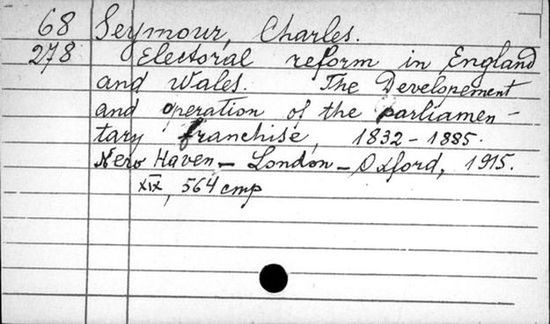 68 Seymour, Charles.
278 Electoral reform in England
and Wales. The Developement
and operation of the parliamen-
tary franchise, 1832-1885.
New Haven - London - Oxford, 1915.
XIX, 564 стр